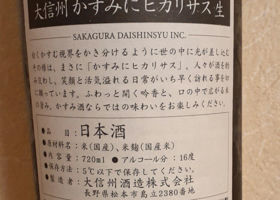 大信州 かすみにヒカリサス生
SAKAGURA DAISHINSYU INC.
白くかすむ視界をかき分けるように世の中に光が差し込む
その様は、まさに「かすみにヒカリサス」。人々が酒を酌
み交わし、笑顔と活気溢れる日常がいち早く訪れる事を切
に願っています。ふわっと開く吟香と、口の中で広がる米
の旨み、かすみ酒ならではの味わいをお楽しみください。
●品 目:日本酒
●原材料名:米(国産)、米麹(国産米)
●内容量:720ml ●アルコール分:16度
●保存方法:5℃以下で保存してください。
●製造者:大信州酒造株式会社
長野県松本市島立2380番地